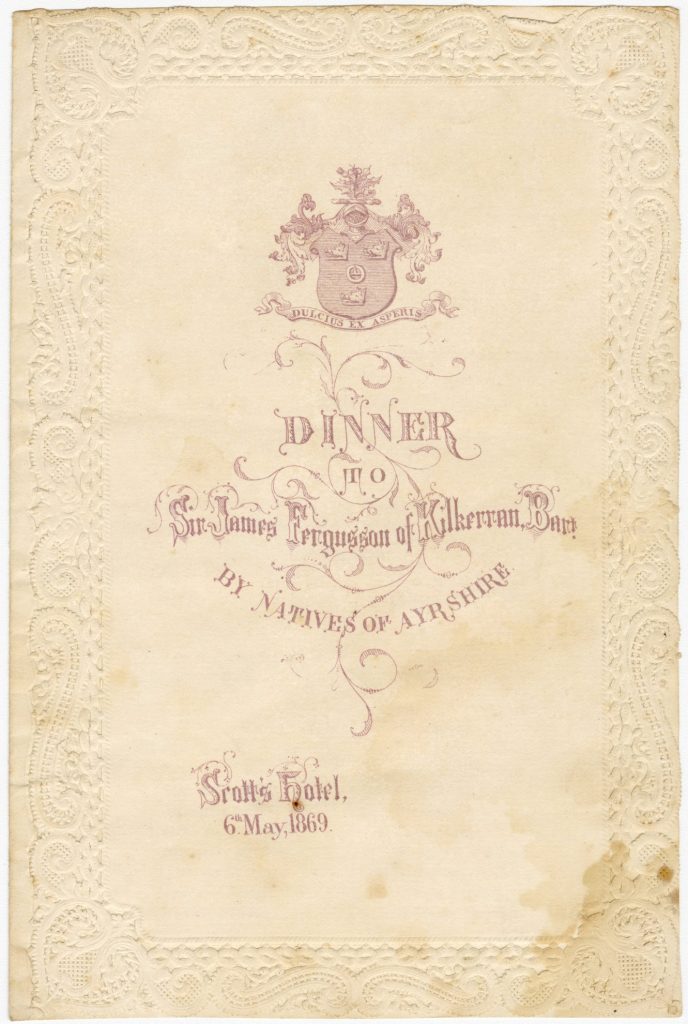 DULCIUS EX ASPERIS
DINNER
TO
Sir James Fergusson of Kilkerran, Bart
BY NATIVES OF AYRSHIRE.
Scott's Hotel,
6th May, 1869.